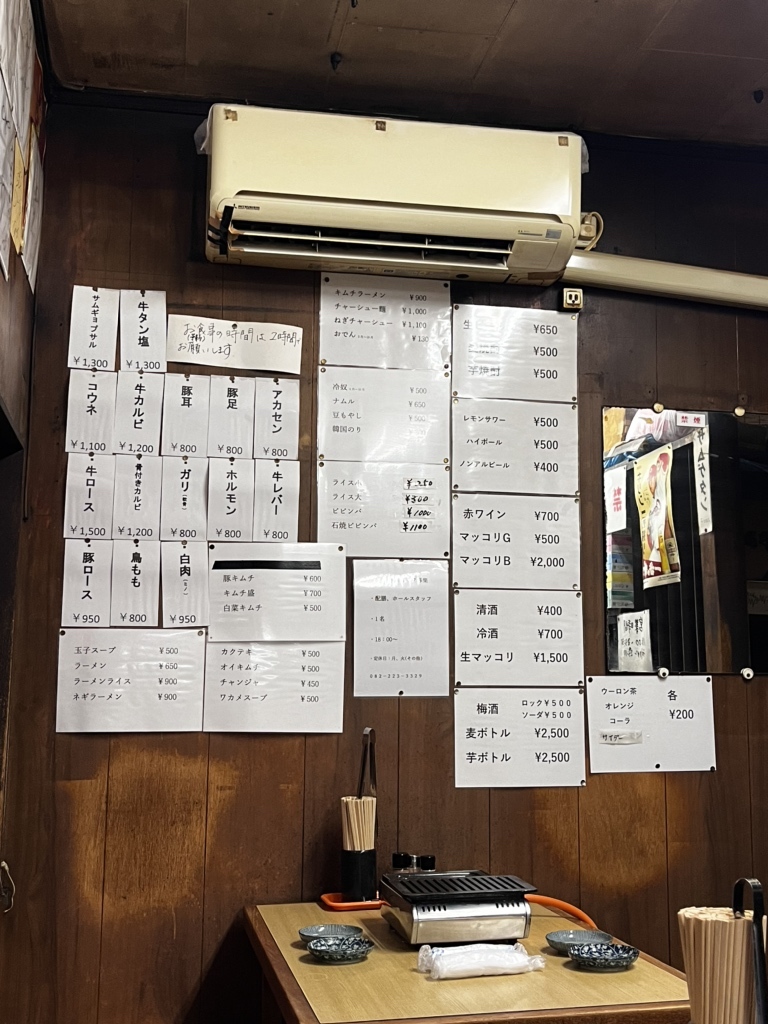 サムギョプサル
¥1,300
牛タン塩
¥1,300
お食事の時間は2時間で
お願いします
コウネ
¥1,100
牛カルビ
¥1,200
豚耳
¥800
豚足
¥800
アカセン
¥800
牛ロース
¥1,500
骨付きカルビ
¥1,200
ガリ
¥800
ホルモン
¥800
牛レバー
¥800
豚ロース
¥950
鳥もも
¥800
白肉(ミノ)
¥950
豚キムチ ¥600
キムチ盛 ¥700
白菜キムチ ¥500
玉子スープ ¥500
ラーメン ¥650
ラーメンライス ¥900
ネギラーメン ¥900
カクテキ ¥500
オイキムチ ¥500
チャンジャ ¥450
ワカメスープ ¥500
MITSUBISHI
キムチラーメン ¥900
チャーシュー麺 ¥1,000
ねぎチャーシュー ¥1,100
おでん ¥130
冷奴 ¥500
ナムル ¥650
豆もやし ¥500
韓国のり
ライス小 ¥250
ライス大 ¥300
ビビンバ ¥1000
石焼ビビンバ ¥1100
・配膳、ホールスタッフ
・1名
・18:00~
・定休日:月、火(その他)
082-233-3329
生 ¥650
¥500
芋焼酎 ¥500
レモンサワー ¥500
ハイボール ¥500
ノンアルビール ¥400
赤ワイン ¥700
マッコリG ¥500
マッコリB ¥2,000
清酒 ¥400
冷酒 ¥700
生マッコリ ¥1,500
梅酒 ロック¥500
ソーダ¥500
麦ボトル ¥2,500
芋ボトル ¥2,500
ウーロン茶 各
オレンジ ¥200
コーラ
サイダー
禁煙
サムゲタン